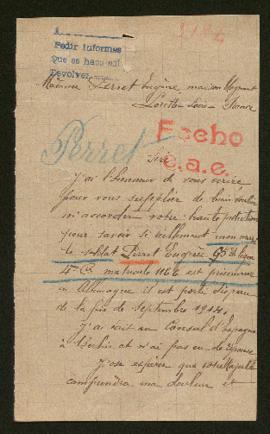 Pedir informes
Que se haga así
Devolver
Madame Perret Eugène maison
Loire
Perret
Fecho
c.a.e.
Sire
J'ai l'honneur de vous écrire
pour vous supplier de bien vouloir
m'accorder votre haute protection
pour savoir si réellement mon mari
le soldat Perret Eugène
4e Cie matricule est prisonnier
en Allemagne il est porté disparu
de la fin de septembre 1914.
J'ai écrit au Consul d'Espagne
à Berlin et n'ai pas eu de réponse
J'ose espérer que votre Majesté
comprendra ma douleur et